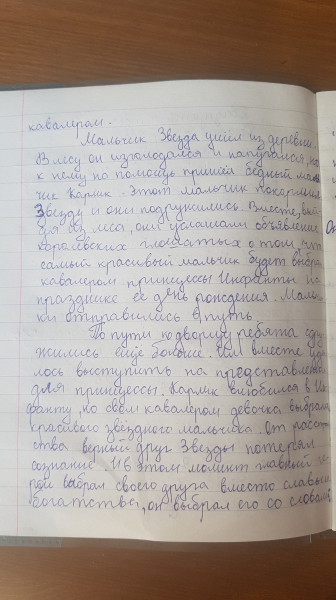 кавалером.
Мальчик Звезда ушёл из деревни.
В лесу он изголодался и напугался, но
к нему на помощь пришёл бедный маль
чик Карлик. Этот мальчик покормил
Звезду и они подружились. Вместе, вый
дя из леса, они услышали объявление
королевских глашатых о том, что
самый красивый мальчик будет выбран
кавалером принцессы Инфанты на
празднике её день рождения. Мальчи
ки отправились в путь.
По пути к дворцу ребята сдру
жились ещё больше. Им вместе уда
лось выступить на представлении
для принцессы. Карлик влюбился в Ин
фанту, но своим кавалером девочка выбрала
красивого звёздного мальчика. От расст
ства верный друг Звезды потерял
сознание. И в этом момент главный ге
рой выбрал своего друга вместо славы и
богатства, он выбрал его со словами